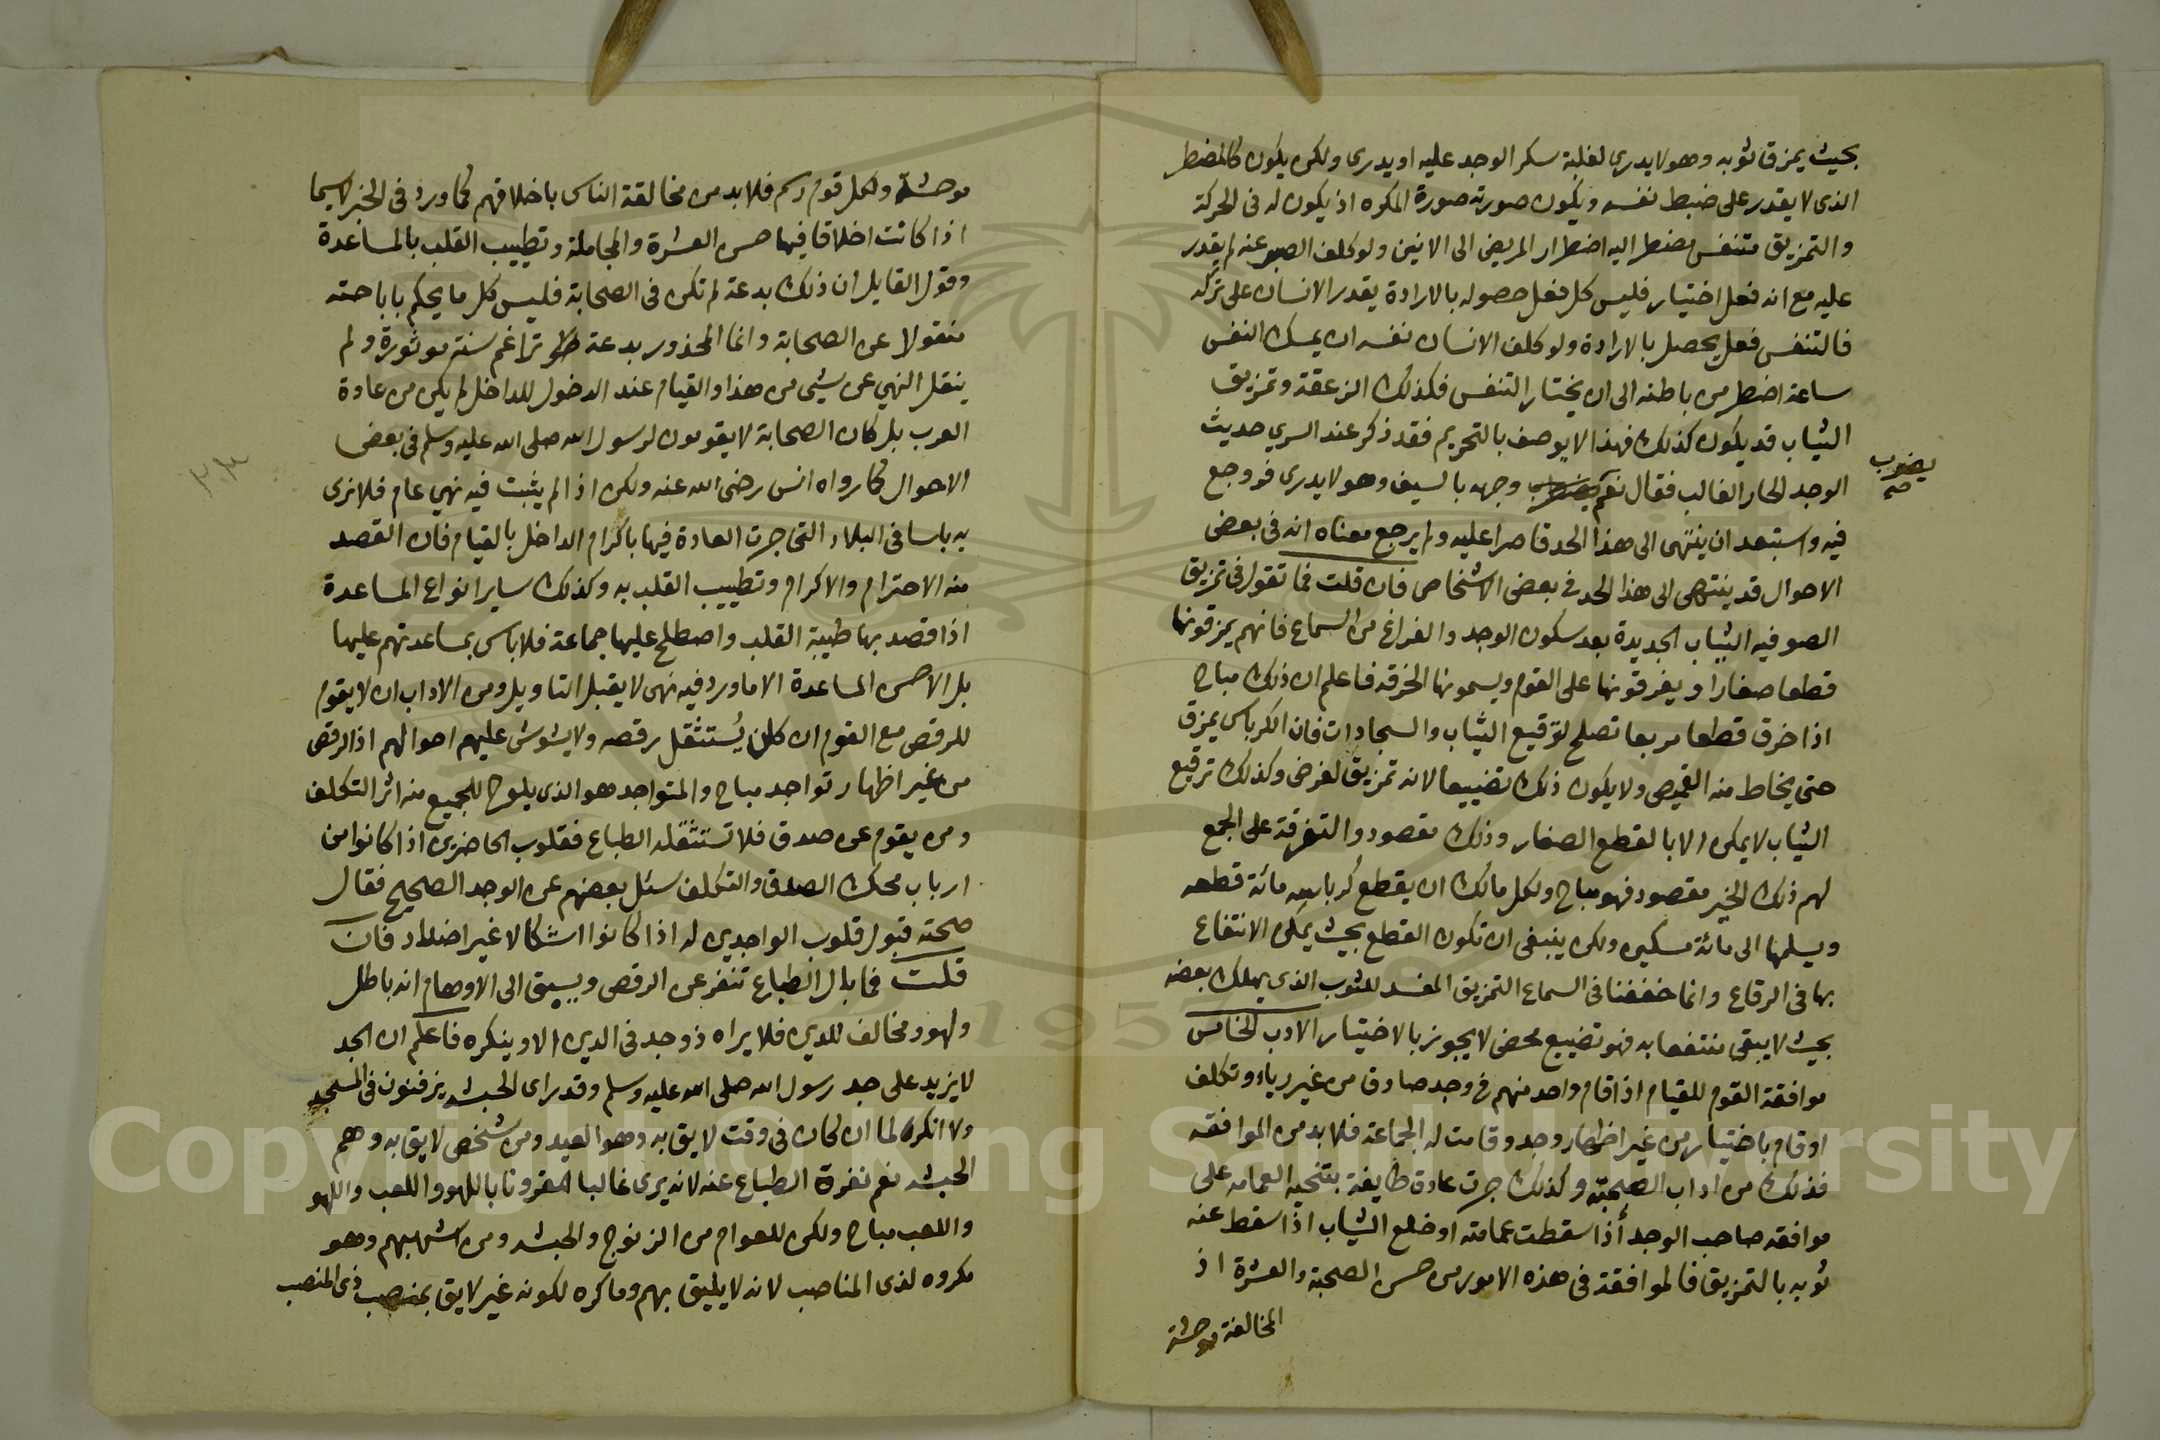 بحيث يمزق ثوبه وهو لا يدري لغلبة سكر الوجد عليه او يدرى ولكن يكون كالمضطر
الذى لا يقدر على ضبط نفسه ويكون صورته صورة المكره اذ يكون له فى الحركة
والتمزيق متنفس يضطر اليه اضطرار المريض الى الانين ولو كلف الصبر عنه لم يقدر
عليه مع انه فعل اختيار فليس كل فعل حصوله بالارادة يقدر الانسان على تركه
فالتنفس فعل يحصل بالارادة ولو كلف الانسان نفسه ان يمسك النفس
ساعة اضطر من باطنه الى ان يختار التنفس فكذلك الزعقة وتمزيق
الثياب قد يكون كذلك فهذا لا يوصف بالتحريم فقد ذكر عند السري حديث
الوجد الحار الغالب فقال نعم وجهه بالسيف وهو لا يدرى فروجع
يضرب
صح
فيه واستبعد ان ينتهى الى هذا الحد فاصر عليه ولم يرجع معناه انه فى بعض
الاحوال قد ينتهى الى هذا الحد فى بعض الاشخاص فان قلت فما تقول فى تمزيق
الصوفيه الثياب الجديدة بعد سكون الوجد والفراغ من السماع فانهم يمزقونها
قطعا صغارا ويفرقونها على القوم ويسمونها الخرقه فاعلم ان ذلك مباح
اذا خرق قطعا مربعا تصلح لترقيع الثياب والسجادات فان الكرباس يمزق
حتى يخاط منه القميص ولا يكون ذلك تضييعا لانه تمزيق لغرض وكذلك ترقيع
الثياب لا يمكن الا بالقطع الصغار وذلك مقصود والتفرقة على الجمع
لهم ذلك الخير مقصود فهو مباح ولكل مالك ان يقطع كرباسه مائة قطعه
ويسلمها الى مائة مسكين ولكن ينبغى ان تكون القطع بحيث يمكن الانتفاع
بها فى الرقاع وانما خففنا فى السماع التمزيق المفسد للثوب الذى يهلك بعضه
بحيث لا يبقى منتفعا به فهو تضييع محض لا يجوز بالاختيار الادب الخامس
موافقة القوم للقيام اذا قام واحد منهم فى وجد صادق من غير رياء وتكلف
او قام باختيار من غير اظهار وجد وقامت له الجماعة فلا بد من الموافقه
فذلك من اداب الصحبة وكذلك جرت عادة طايفة بتنحيه العمامه على
موافقه صاحب الوجد اذا سقطت عمامته او خلع الثياب اذا سقط عنه
ثوبه بالتمزيق فالموافقة فى هذه الامور من حسن الصحبة والعشرة اذ
المخالفة موحشة
موحشة ولكل قوم رسم فلا بد من مخالقة الناس باخلاقهم كما ورد فى الخبر لا سيما
اذا كانت اخلاقا فيها حسن العشرة والمجاملة وتطييب القلب بالمساعدة
وقول القايل ان ذلك بدعة لم تكن فى الصحابة فليس كل ما يحكم باباحته
منقولا عن الصحابة وانما المحذور بدعة تراغم سنة موثورة ولم
ينقل النهي عن شيى من هذا والقيام عند الدخول للداخل لم يكن من عادة
العرب بل كان الصحابة لا يقومون لرسول الله صلى الله عليه وسلم فى بعض
الاحوال كما رواه انس رضى الله عنه ولكن اذا لم يثبت فيه نهي عام فلا نرى
به باسا فى البلاد التى جرت العادة فيها باكرام الداخل بالقيام فان القصد
منه الاحترام والاكرام وتطييب القلب به وكذلك ساير انواع المساعدة
اذا قصد بها طيبة القلب واصطلح عليها جماعة فلا باس بمساعدتهم عليها
بل الاحسن المساعدة الا ما ورد فيه نهى لا يقبل التاويل ومن الاداب ان لا يقوم
للرقص مع القوم ان كان يُستثقل رقصه ولا يشوش عليهم احوالهم اذ الرقص
من غير اظهار تواجد مباح والمتواجد هو الذى يلوح للجميع منه اثر التكلف
ومن يقوم عن صدق فلا تستثقله الطباع فقلوب الحاضرين اذا كانوا من
ارباب محك الصدق والتكلف سئل بعضهم عن الوجد الصحيح فقال
صحته قبول قلوب الواجدين له اذا كانوا اشكالا غير اضداد فان
قلت فما بال الطباع تنفر عن الرقص ويسبق الى الاوهام انه باطل
ولهو ومخالف للدين فلا يراه ذو جد فى الدين الا وينكره فاعلم ان الجد
لا يزيد على جد رسول الله صلى الله عليه وسلم وقد راى الحبشه يزفنون فى المسجد
ولا انكره لما ان كان فى وقت لايق به وهو العيد ومن شخص لايق به وهم
الحبشه نعم نفرة الطباع عنه لانه يرى غالبا مقرونا باللهو واللعب واللهو
واللعب مباح ولكن للعوام من الزنوج والحبشه ومن اشبههم وهو
مكروه لذى المناصب لانه لا يليق بهم وما كره لكونه غير لايق بمنصب ذى المنصب
Copyright © King Saud University
1957